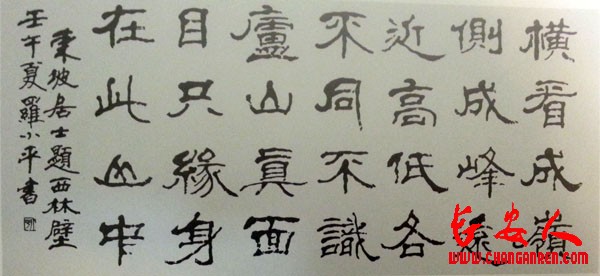 橫看成嶺
側成峰遠
近高低各
不同不識
廬山眞面
目只緣身
在此山中
東坡居士題西林壁
壬午夏羅小平書
长安人
www.CHANGANREN.COM